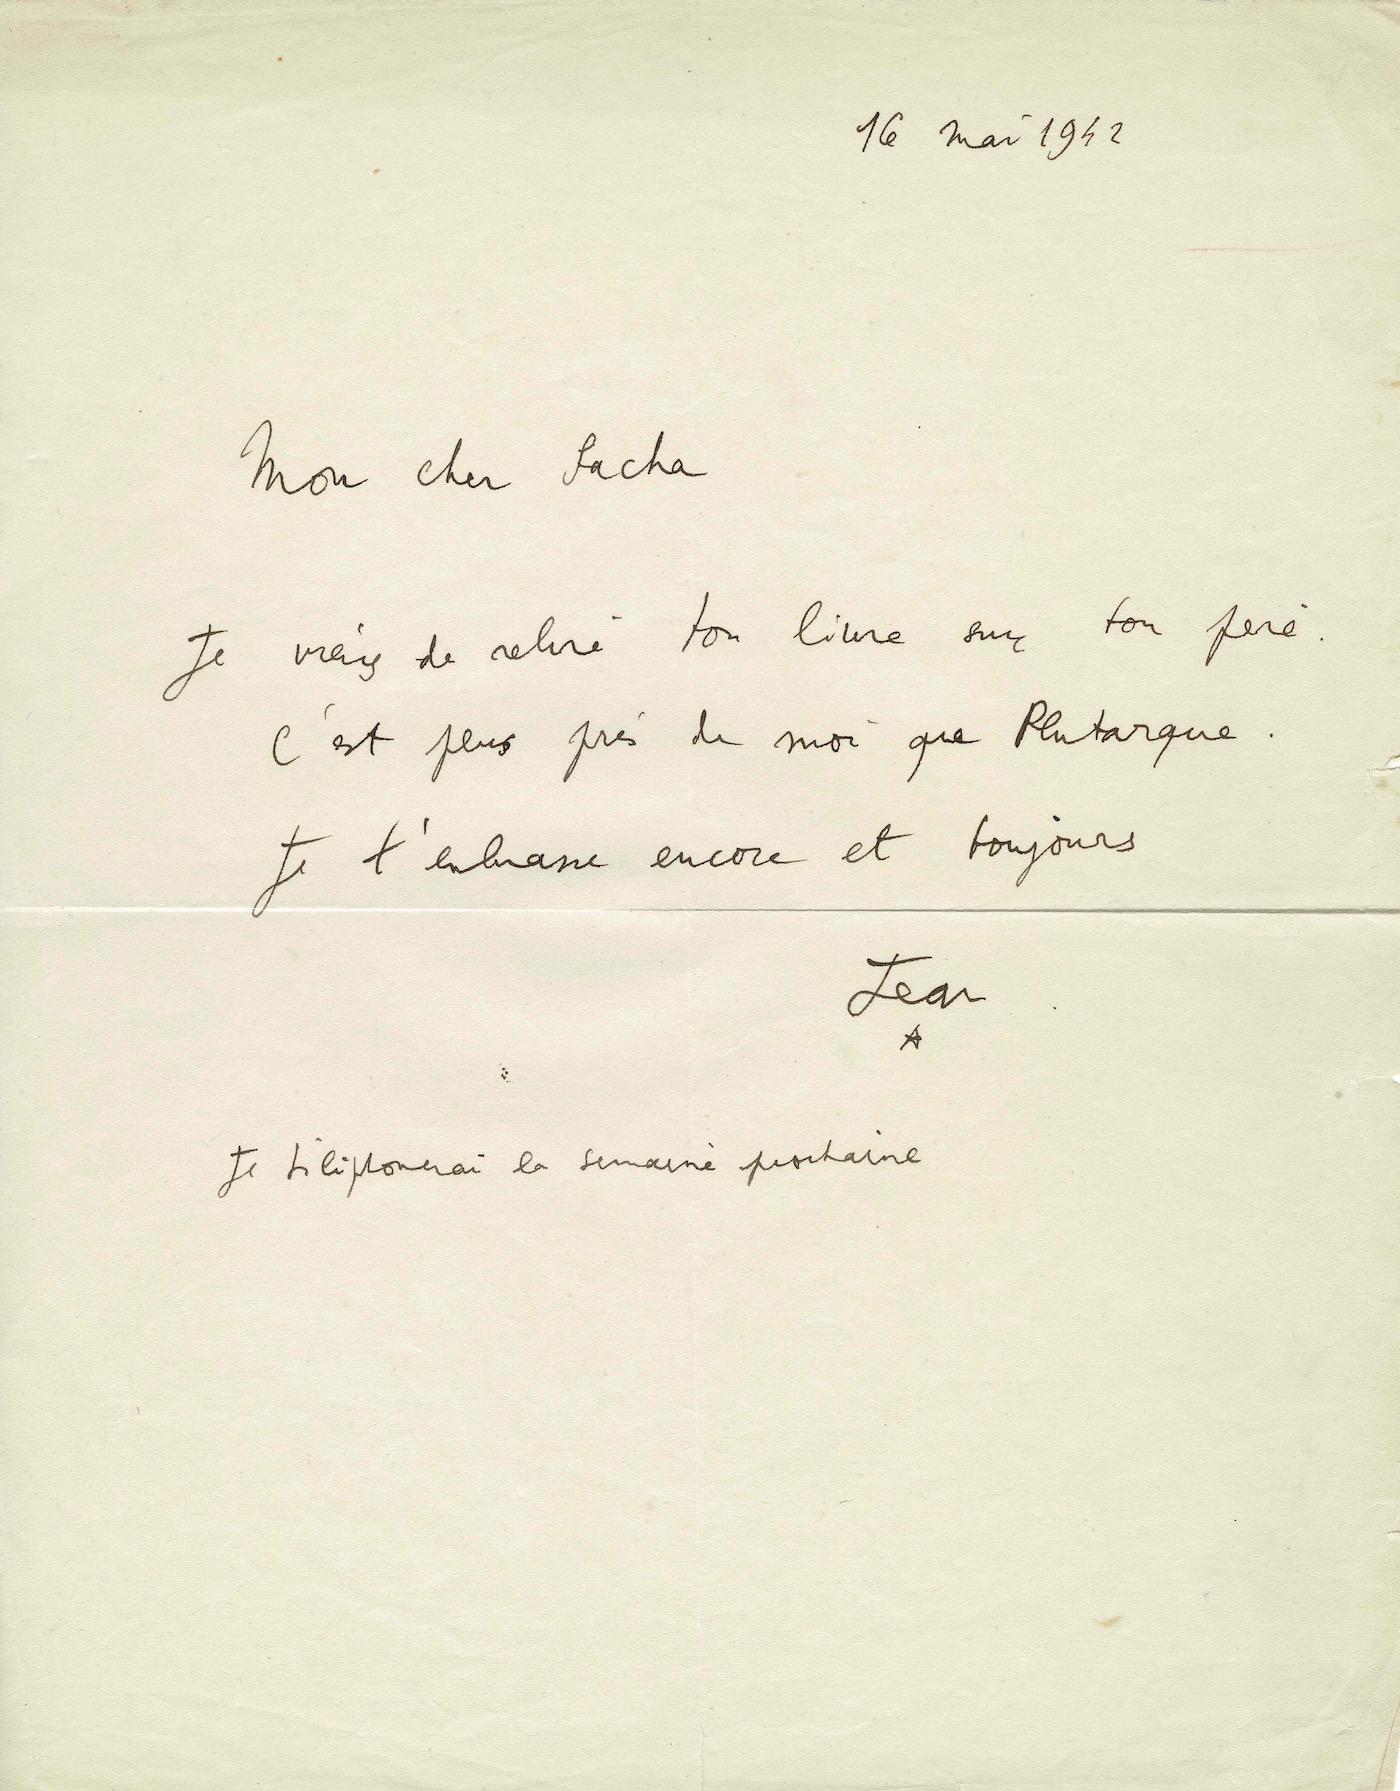 16 mai 1942
Mon cher Sacha
Je viens de relire ton livre sur ton père.
C'est plus près de moi que Plutarque.
Je t'embrasse encore et toujours
Jean
Je téléphonerai la semaine prochaine